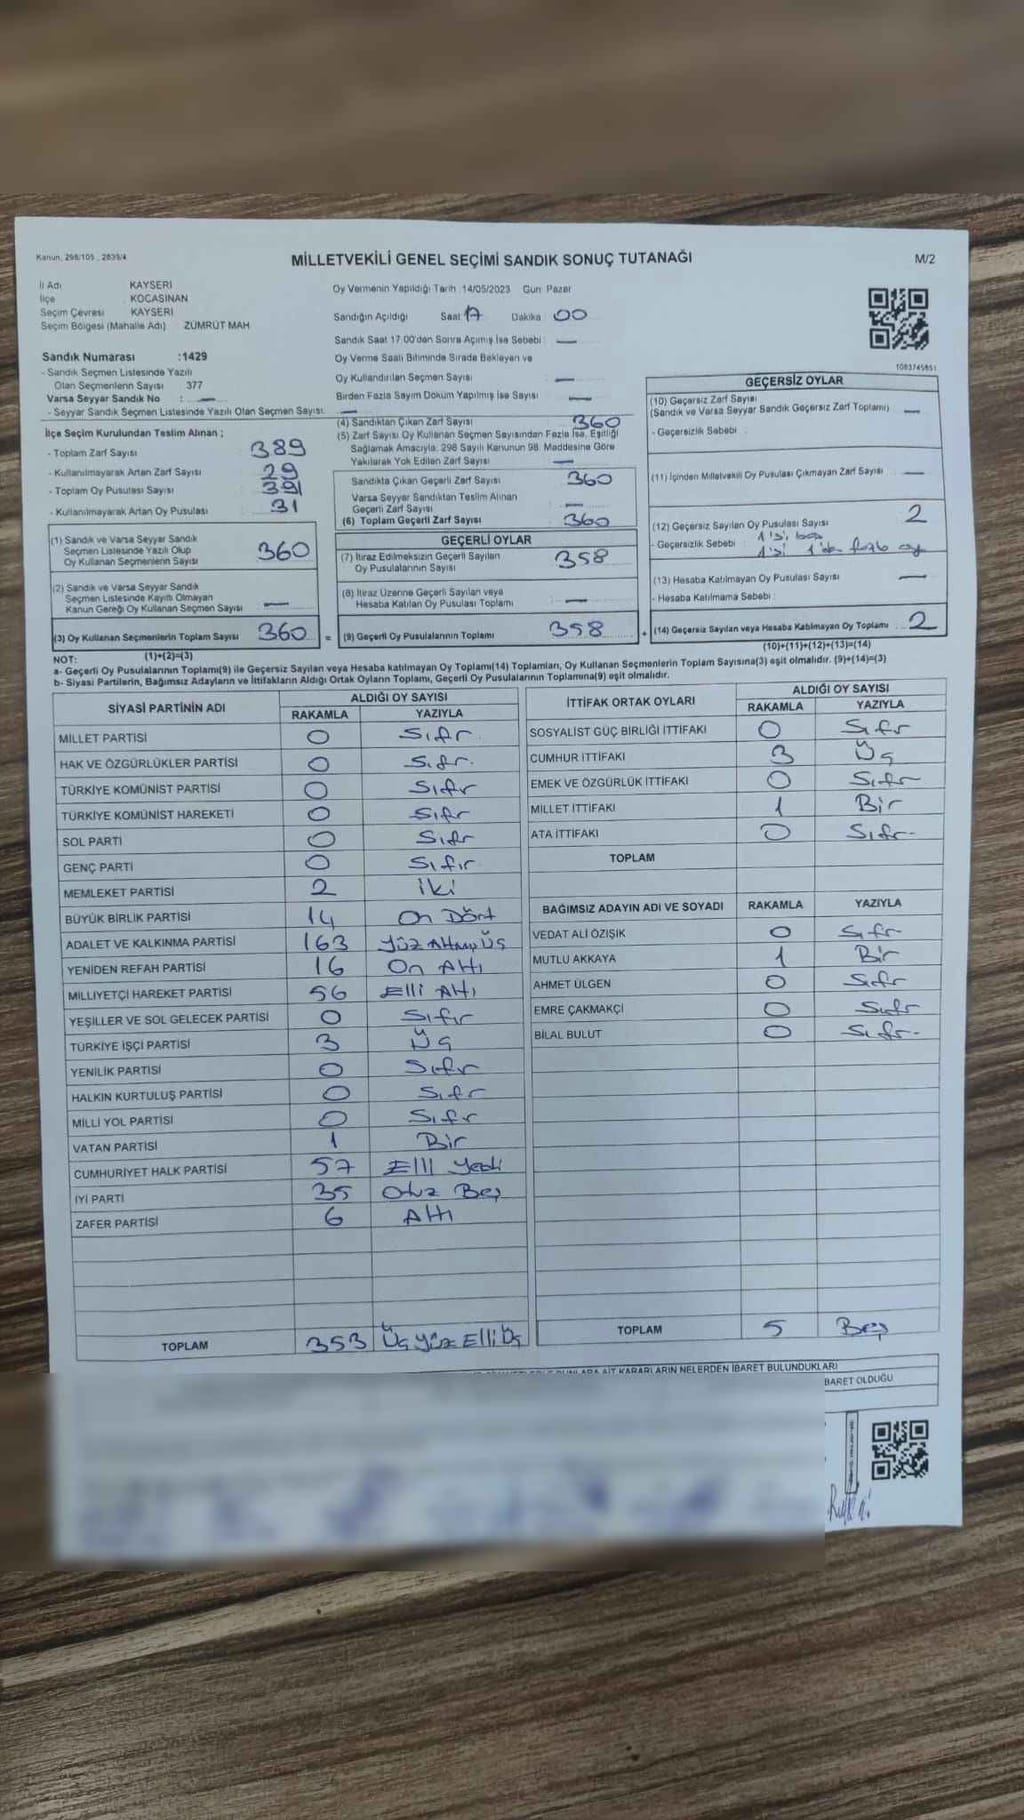 Kanun, 298/105 , 2839/4
MİLLETVEKİLİ GENEL SEÇİMİ SANDIK SONUÇ TUTANAĞI
M/2
İl Adı KAYSERİ
İlçe KOCASİNAN
Seçim Çevresi KAYSERİ
Seçim Bölgesi (Mahalle Adı) ZÜMRÜT MAH
Sandık Numarası :1429
- Sandık Seçmen Listesinde Yazılı
Olan Seçmenlerin Sayısı 377
Varsa Seyyar Sandık No : —
- Seyyar Sandık Seçmen Listesinde Yazılı Olan Seçmen Sayısı: —
Oy Vermenin Yapıldığı Tarih :14/05/2023 Gün: Pazar
Sandığın Açıldığı Saat 17 Dakika 00
Sandık Saat 17.00'den Sonra Açılmış İse Sebebi : —
Oy Verme Saati Bitiminde Sırada Bekleyen ve
Oy Kullandırılan Seçmen Sayısı : —
Birden Fazla Sayım Döküm Yapılmış İse Sayısı : —
1083745851
İlçe Seçim Kurulundan Teslim Alınan ;
- Toplam Zarf Sayısı : 389
- Kullanılmayarak Artan Zarf Sayısı : 29
- Toplam Oy Pusulası Sayısı : 391
- Kullanılmayarak Artan Oy Pusulası : 31
(1) Sandık ve Varsa Seyyar Sandık
Seçmen Listesinde Yazılı Olup
Oy Kullanan Seçmenlerin Sayısı 360
(2) Sandık ve Varsa Seyyar Sandık
Seçmen Listesinde Kayıtlı Olmayan
Kanun Gereği Oy Kullanan Seçmen Sayısı —
(3) Oy Kullanan Seçmenlerin Toplam Sayısı 360 =
(1)+(2)=(3)
(4) Sandıktan Çıkan Zarf Sayısı : 360
(5) Zarf Sayısı Oy Kullanan Seçmen Sayısından Fazla İse, Eşitliği
Sağlamak Amacıyla, 298 Sayılı Kanunun 98. Maddesine Göre
Yakılarak Yok Edilen Zarf Sayısı : —
Sandıkta Çıkan Geçerli Zarf Sayısı : 360
Varsa Seyyar Sandıktan Teslim Alınan
Geçerli Zarf Sayısı : —
(6) Toplam Geçerli Zarf Sayısı : 360
GEÇERLİ OYLAR
(7) İtiraz Edilmeksizin Geçerli Sayılan
Oy Pusulalarının Sayısı : 358
(8) İtiraz Üzerine Geçerli Sayılan veya
Hesaba Katılan Oy Pusulası Toplamı : —
(9) Geçerli Oy Pusulalarının Toplamı : 358 +
GEÇERSİZ OYLAR
(10) Geçersiz Zarf Sayısı
(Sandık ve Varsa Seyyar Sandık Geçersiz Zarf Toplamı) : —
- Geçersizlik Sebebi :
(11) İçinden Milletvekili Oy Pusulası Çıkmayan Zarf Sayısı : —
(12) Geçersiz Sayılan Oy Pusulası Sayısı : 2
- Geçersizlik Sebebi : 1'si boş
1'si 1'den fazla oy
(13) Hesaba Katılmayan Oy Pusulası Sayısı : —
- Hesaba Katılmama Sebebi :
(14) Geçersiz Sayılan veya Hesaba Katılmayan Oy Toplamı : 2
(10)+(11)+(12)+(13)=(14)
NOT:
a- Geçerli Oy Pusulalarının Toplamı(9) ile Geçersiz Sayılan veya Hesaba katılmayan Oy Toplamı(14) Toplamları, Oy Kullanan Seçmenlerin Toplam Sayısına(3) eşit olmalıdır. (9)+(14)=(3)
b- Siyasi Partilerin, Bağımsız Adayların ve İttifakların Aldığı Ortak Oyların Toplamı, Geçerli Oy Pusulalarının Toplamına(9) eşit olmalıdır.
SİYASİ PARTİNİN ADI ALDIĞI OY SAYISI
RAKAMLA YAZIYLA
MİLLET PARTİSİ 0 Sıfır
HAK VE ÖZGÜRLÜKLER PARTİSİ 0 Sıfır
TÜRKİYE KOMÜNİST PARTİSİ 0 Sıfır
TÜRKİYE KOMÜNİST HAREKETİ 0 Sıfır
SOL PARTİ 0 Sıfır
GENÇ PARTİ 0 Sıfır
MEMLEKET PARTİSİ 2 İki
BÜYÜK BİRLİK PARTİSİ 14 On Dört
ADALET VE KALKINMA PARTİSİ 163 Yüz Altmış Üç
YENİDEN REFAH PARTİSİ 16 On Altı
MİLLİYETÇİ HAREKET PARTİSİ 56 Elli Altı
YEŞİLLER VE SOL GELECEK PARTİSİ 0 Sıfır
TÜRKİYE İŞÇİ PARTİSİ 3 Üç
YENİLİK PARTİSİ 0 Sıfır
HALKIN KURTULUŞ PARTİSİ 0 Sıfır
MİLLİ YOL PARTİSİ 0 Sıfır
VATAN PARTİSİ 1 Bir
CUMHURİYET HALK PARTİSİ 57 Elli Yedi
İYİ PARTİ 35 Otuz Beş
ZAFER PARTİSİ 6 Altı
TOPLAM 353 Üç Yüz Elli Üç
İTTİFAK ORTAK OYLARI ALDIĞI OY SAYISI
RAKAMLA YAZIYLA
SOSYALİST GÜÇ BİRLİĞİ İTTİFAKI 0 Sıfır
CUMHUR İTTİFAKI 3 Üç
EMEK VE ÖZGÜRLÜK İTTİFAKI 0 Sıfır
MİLLET İTTİFAKI 1 Bir
ATA İTTİFAKI 0 Sıfır
TOPLAM
BAĞIMSIZ ADAYIN ADI VE SOYADI RAKAMLA YAZIYLA
VEDAT ALİ ÖZIŞIK 0 Sıfır
MUTLU AKKAYA 1 Bir
AHMET ÜLGEN 0 Sıfır
EMRE ÇAKMAKÇI 0 Sıfır
BİLAL BULUT 0 Sıfır
TOPLAM 5 Beş
AİT KARARLARIN NELERDEN İBARET BULUNDUKLARI
BARET OLDUĞU